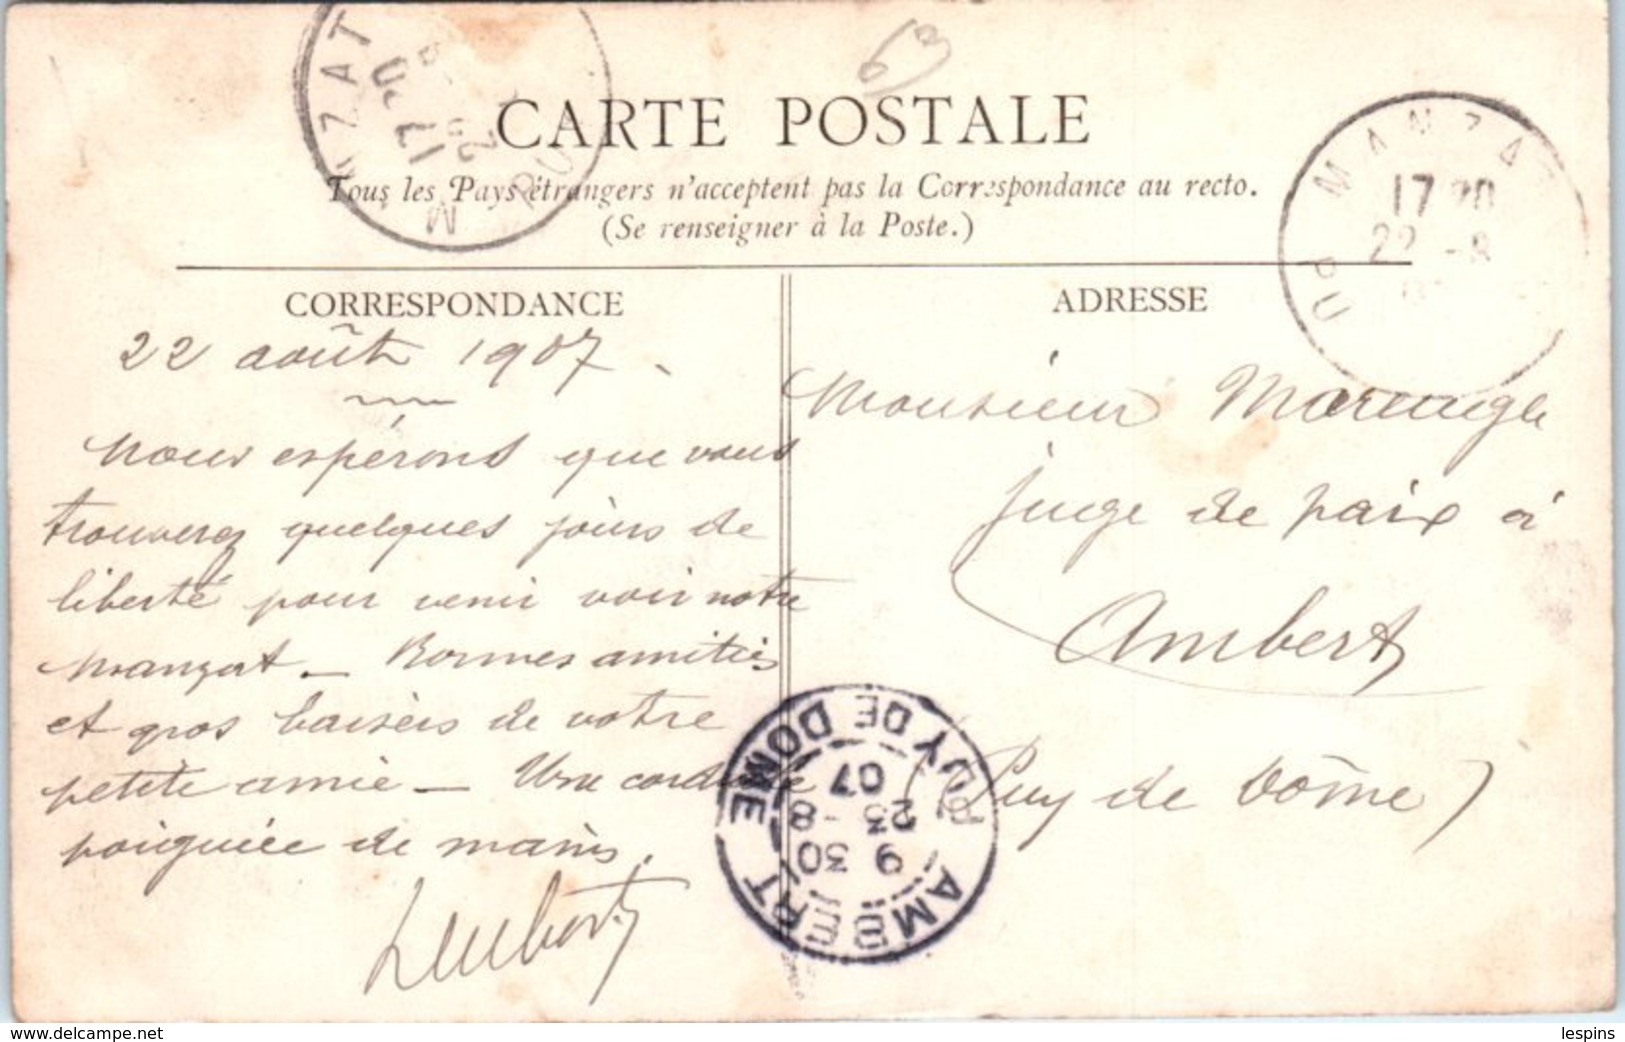 63
CARTE POSTALE
Tous les Pays étrangers n'acceptent pas la Correspondance au recto.
(Se renseigner à la Poste.)
MANZAT
17 20
22 -8
PU
CORRESPONDANCE
22 août 1907.
Nous espérons que vous
trouverez quelques jours de
liberté pour venir voir notre
Manzat - Bonnes amitiés
et gros baisers de votre
petite amie - Une cordiale
poignée de mains.
ADRESSE
Monsieur
juge de paix à
Ambert
(Puy de Dôme)
AMBERT
9 30
23 -8
07
PUY DE DOME
www.delcampe.net
lespins